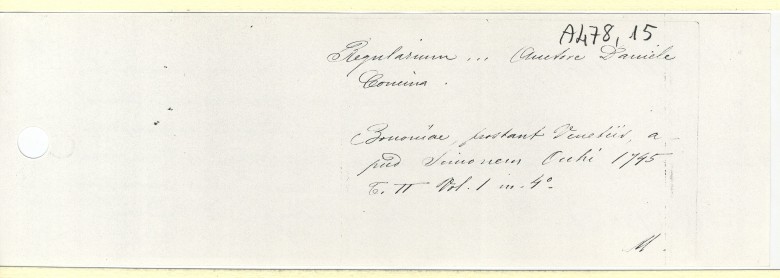 A478, 15
Regularium ... Auctore Daniele
Concina.
Bononiae, prostant Venetiis, a-
pud Simonem Occhi 1745
T. II Vol. 1 in-4º
M.